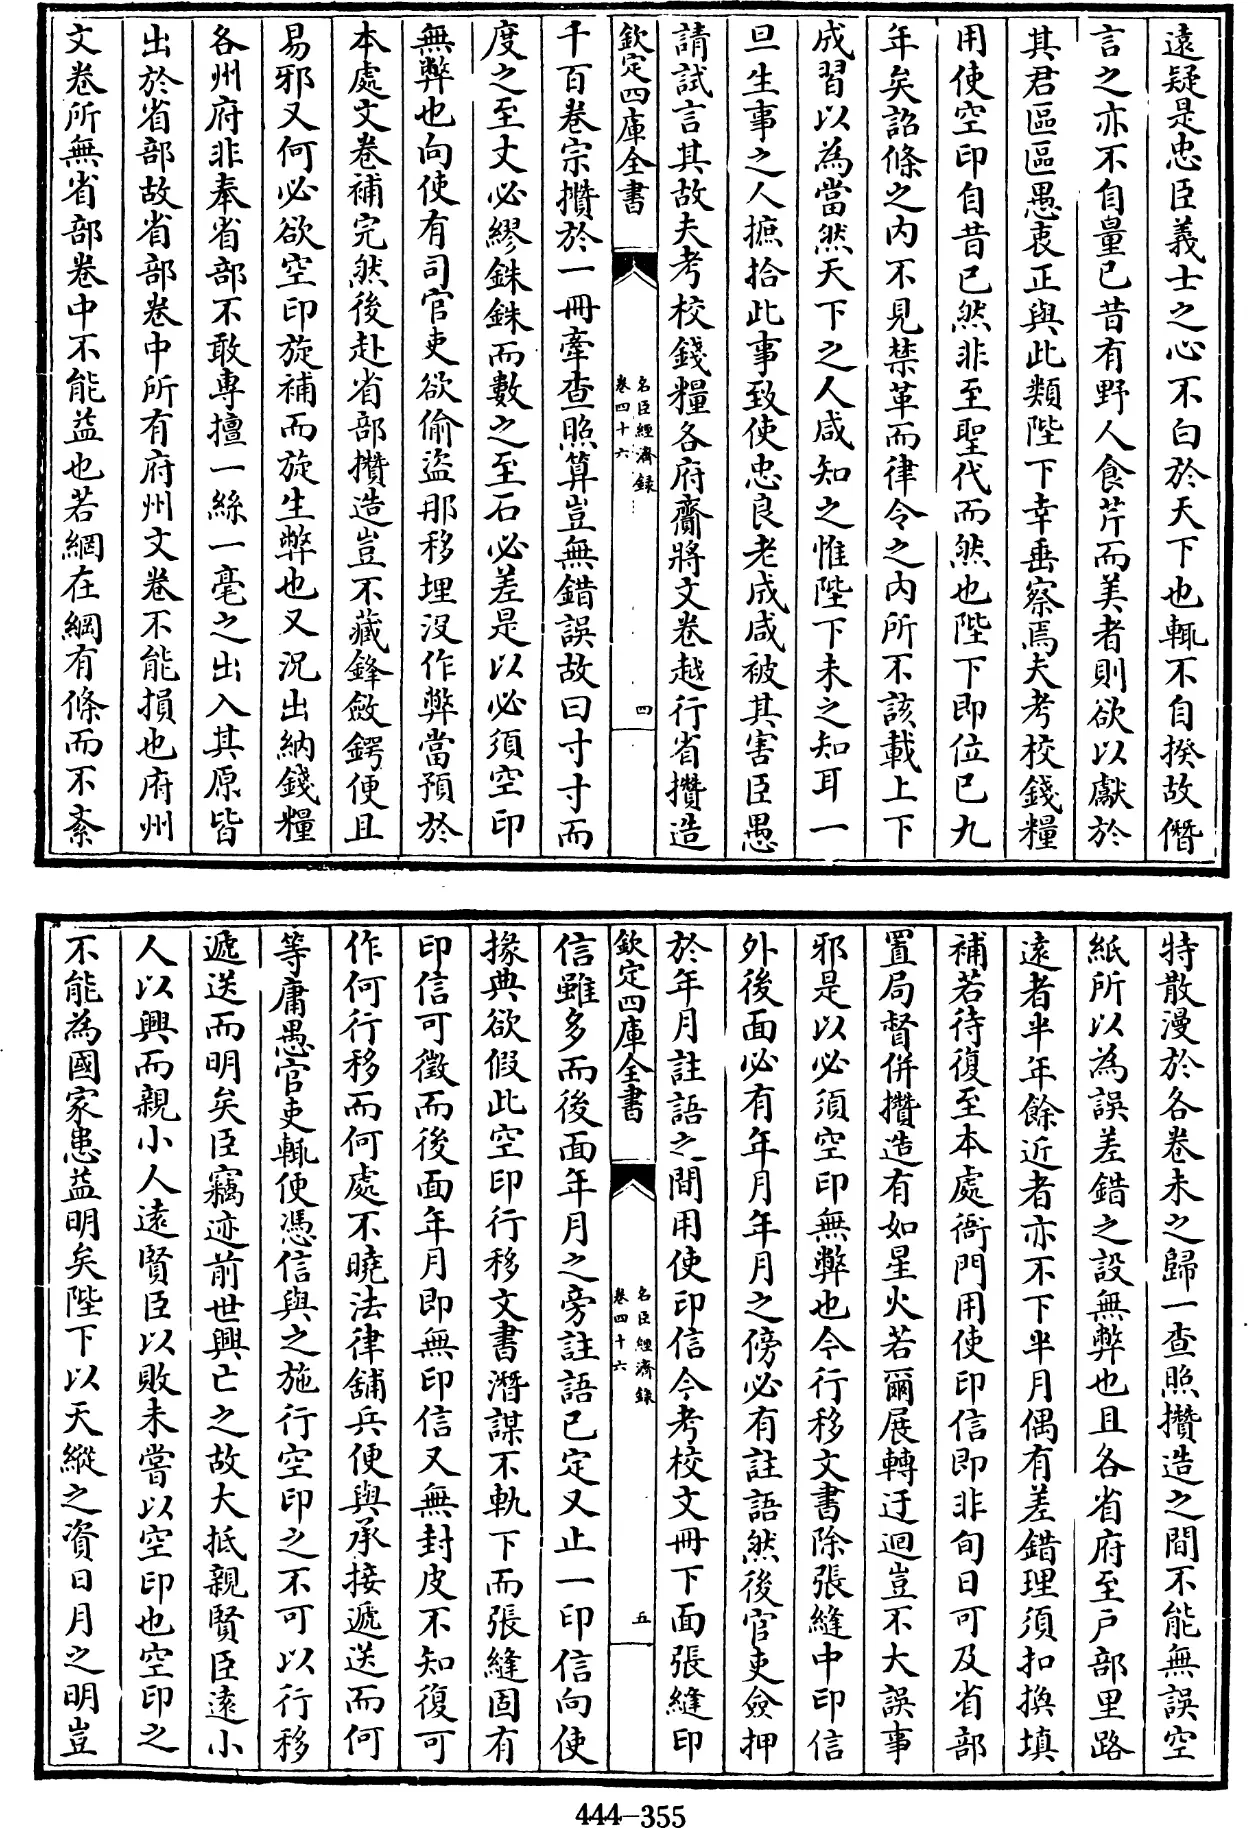 遠疑是忠臣義士之心不白於天下也輒不自揆故僭
言之亦不自量已昔有野人食芹而美者則欲以獻於
其君區區愚衷正與此類陛下幸垂察焉夫考校錢糧
用使空印自昔已然非至聖代而然也陛下即位已九
年矣詔條之內不見禁革而律令之內所不該載上下
成習以為當然天下之人咸知之惟陛下未之知耳一
旦生事之人摭拾此事致使忠良老成咸被其害臣愚
請試言其故夫考校錢糧各府齎將文卷越行省攢造
欽定四庫全書
名臣經濟録
卷四十六
四
千百卷宗攢於一冊牽查照算豈無錯誤故曰寸寸而
度之至丈必繆銖銖而數之至石必差是以必須空印
無弊也向使有司官吏欲偷盜那移埋沒作弊當預於
本處文卷補完然後赴省部攢造豈不藏鋒斂鍔便且
易邪又何必欲空印旋補而旋生弊也又況出納錢糧
各州府非奉省部不敢專擅一絲一毫之出入其原皆
出於省部故省部卷中所有府州文卷不能損也府州
文卷所無省部卷中不能益也若網在綱有條而不紊
特散漫於各卷未之歸一查照攢造之間不能無誤空
紙所以為誤差錯之設無弊也且各省府至戶部里路
遠者半年餘近者亦不下半月偶有差錯理須扣換填
補若待復至本處衙門用使印信即非旬日可及省部
置局督併攢造有如星火若爾展轉迂迴豈不大誤事
邪是以必須空印無弊也今行移文書除張縫中印信
外後面必有年月年月之傍必有註語然後官吏僉押
於年月註語之間用使印信今考校文冊下面張縫印
欽定四庫全書
名臣經濟録
卷四十六
五
信雖多而後面年月之旁註語已定又止一印信向使
掾典欲假此空印行移文書潛謀不軌下而張縫固有
印信可徵而後面年月即無印信又無封皮不知復可
作何行移而何處不曉法律舖兵便與承接遞送而何
等庸愚官吏輒便憑信與之施行空印之不可以行移
遞送而明矣臣竊迹前世興亡之故大抵親賢臣遠小
人以興而親小人遠賢臣以敗未嘗以空印也空印之
不能為國家患益明矣陛下以天縱之資日月之明豈
444-355